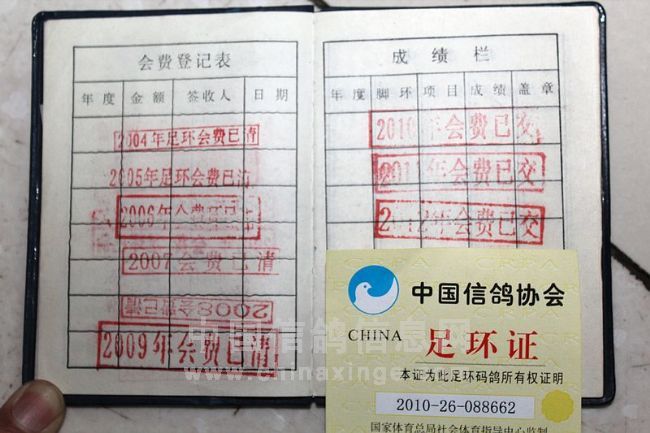 会费登记表
年度 金额 签收人 日期
2004年足环会费已清
2005年足环会费已清
2006年会费已
2007会费已清
2008会费已清
2009年会费已清
成绩栏
年度 脚环 项目 成绩 盖章
2010年会费已交
2011年会费已交
2012年会费已交
中国信鸽协会
CHINA 足环证
本证为此足环码鸽所有权证明
2010-26-088662
国家体育总局社会体育指导中心监制
中国信鸽信息网